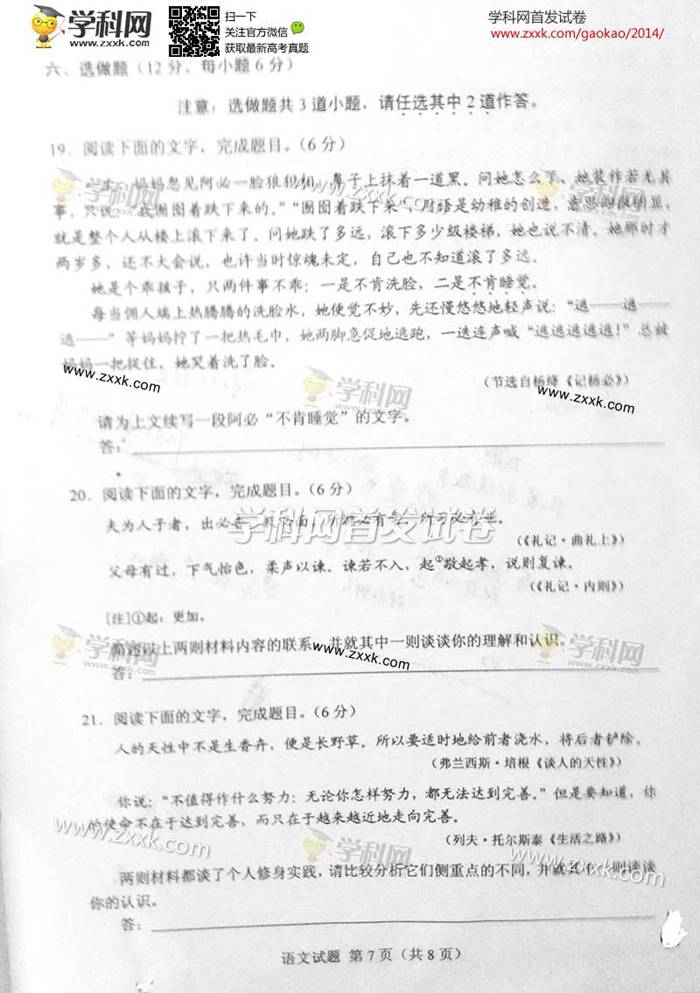 学科网
www.zxxk.com
扫一下
关注官方微信
获取最新高考真题
学科网首发试卷
www.zxxk.com/gaokao/2014/
六、选做题（12分，每小题6分）
注意：选做题共3道小题，请任选其中2道作答。
19．阅读下面的文字，完成题目。（6分）
妈妈忽见阿必一脸狼狈相，鼻子上抹着一道黑。问她怎么了，她装作若无其
事，只说：“我囫囵着跌下来的。”“囫囵着跌下来”，
就是整个人从楼上滚下来了。问她跌了多远，滚下多少级楼梯，她也说不清。她那时才
两岁多，还不大会说，也许当时惊魂未定，自己也不知道滚了多远。
她是个乖孩子，只两件事不乖：一是不肯洗脸，二是不肯睡觉。
每当佣人端上热腾腾的洗脸水，她便觉不妙，先还慢悠悠地轻声说：“逃——逃——
逃——”等妈妈拧了一把热毛巾，她两脚急促地逃跑，一迭连声喊“逃逃逃逃逃！”总被
妈妈一把捉住，她哭着洗了脸。
www.zxxk.com
学科网
（节选自杨绛《记杨必》）
www.zxxk.com
请为上文续写一段阿必“不肯睡觉”的文字。
答：
20．阅读下面的文字，完成题目。（6分）
夫为人子者，出必告
学科网首发试卷
（《礼记·曲礼上》）
父母有过，下气怡色，柔声以谏。谏若不入，起①敬起孝，说则复谏。
（《礼记·内则》）
[注]①起：更加。
简述以上两则材料内容的联系，并就其中一则谈谈你的理解和认识。
www.zxxk.com
答：
21．阅读下面的文字，完成题目。（6分）
人的天性中不是生香卉，便是长野草。所以要适时地给前者浇水，将后者铲除。
（弗兰西斯·培根《谈人的天性》）
你说：“不值得作什么努力：无论你怎样努力，都无法达到完善。”但是要知道，你
的使命不在于达到完善，而只在于越来越近地走向完善。
www.zxxk.com
（列夫·托尔斯泰《生活之路》）
两则材料都谈了个人修身实践，请比较分析它们侧重点的不同，并就其中一则谈谈
你的认识。
www.zxxk.com
答：
语文试题 第7页（共8页）